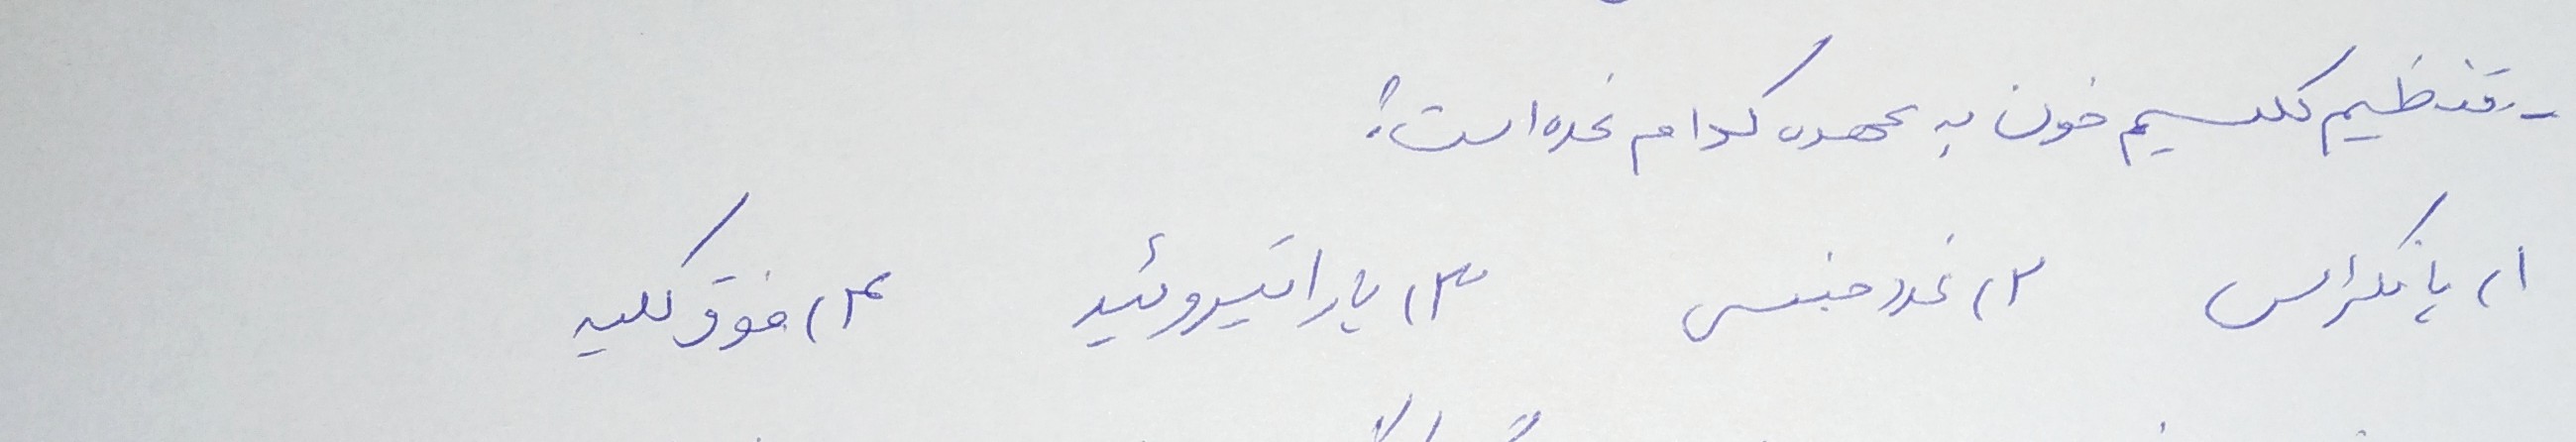 - تنظیم کلسیم خون به عهده کدام غده است؟
۱) پانکراس ۲) غدد جنسی ۳) پاراتیروئید ۴) فوق کلیه